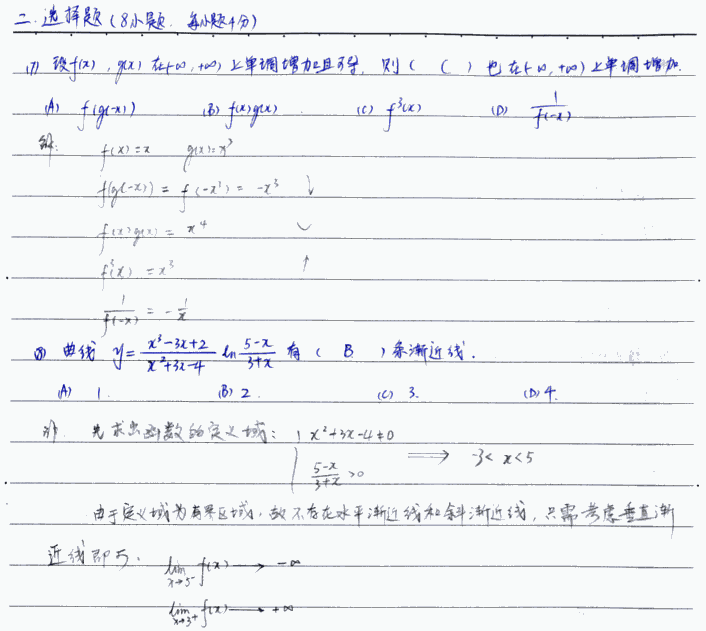 二.选择题(8小题.每小题4分)
(7) 设f(x),g(x)在(-∞,+∞)上单调增加且可导,则( C )也在(-∞,+∞)上单调增加.
(A) f(g(-x)) (B) f(x)g(x) (C) f³(x) (D) 1/f(-x)
解: f(x)=x g(x)=x³
f(g(-x)) = f(-x³) = -x³ ↓
f(x)g(x) = x⁴ ∪
f³(x) = x³ ↑
1/f(-x) = -1/x
(8) 曲线 y = (x³-3x+2)/(x²+3x-4) ln (5-x)/(3+x) 有( B )条渐近线.
(A) 1. (B) 2. (C) 3. (D) 4.
解. 先求出函数的定义域: { x²+3x-4≠0
(5-x)/(3+x) >0 ⟹ -3< x<5
由于定义域为有界区域,故不存在水平渐近线和斜渐近线,只需考虑垂直渐
近线即可. lim x→5⁻ f(x) → -∞
lim x→3⁺ f(x) → +∞